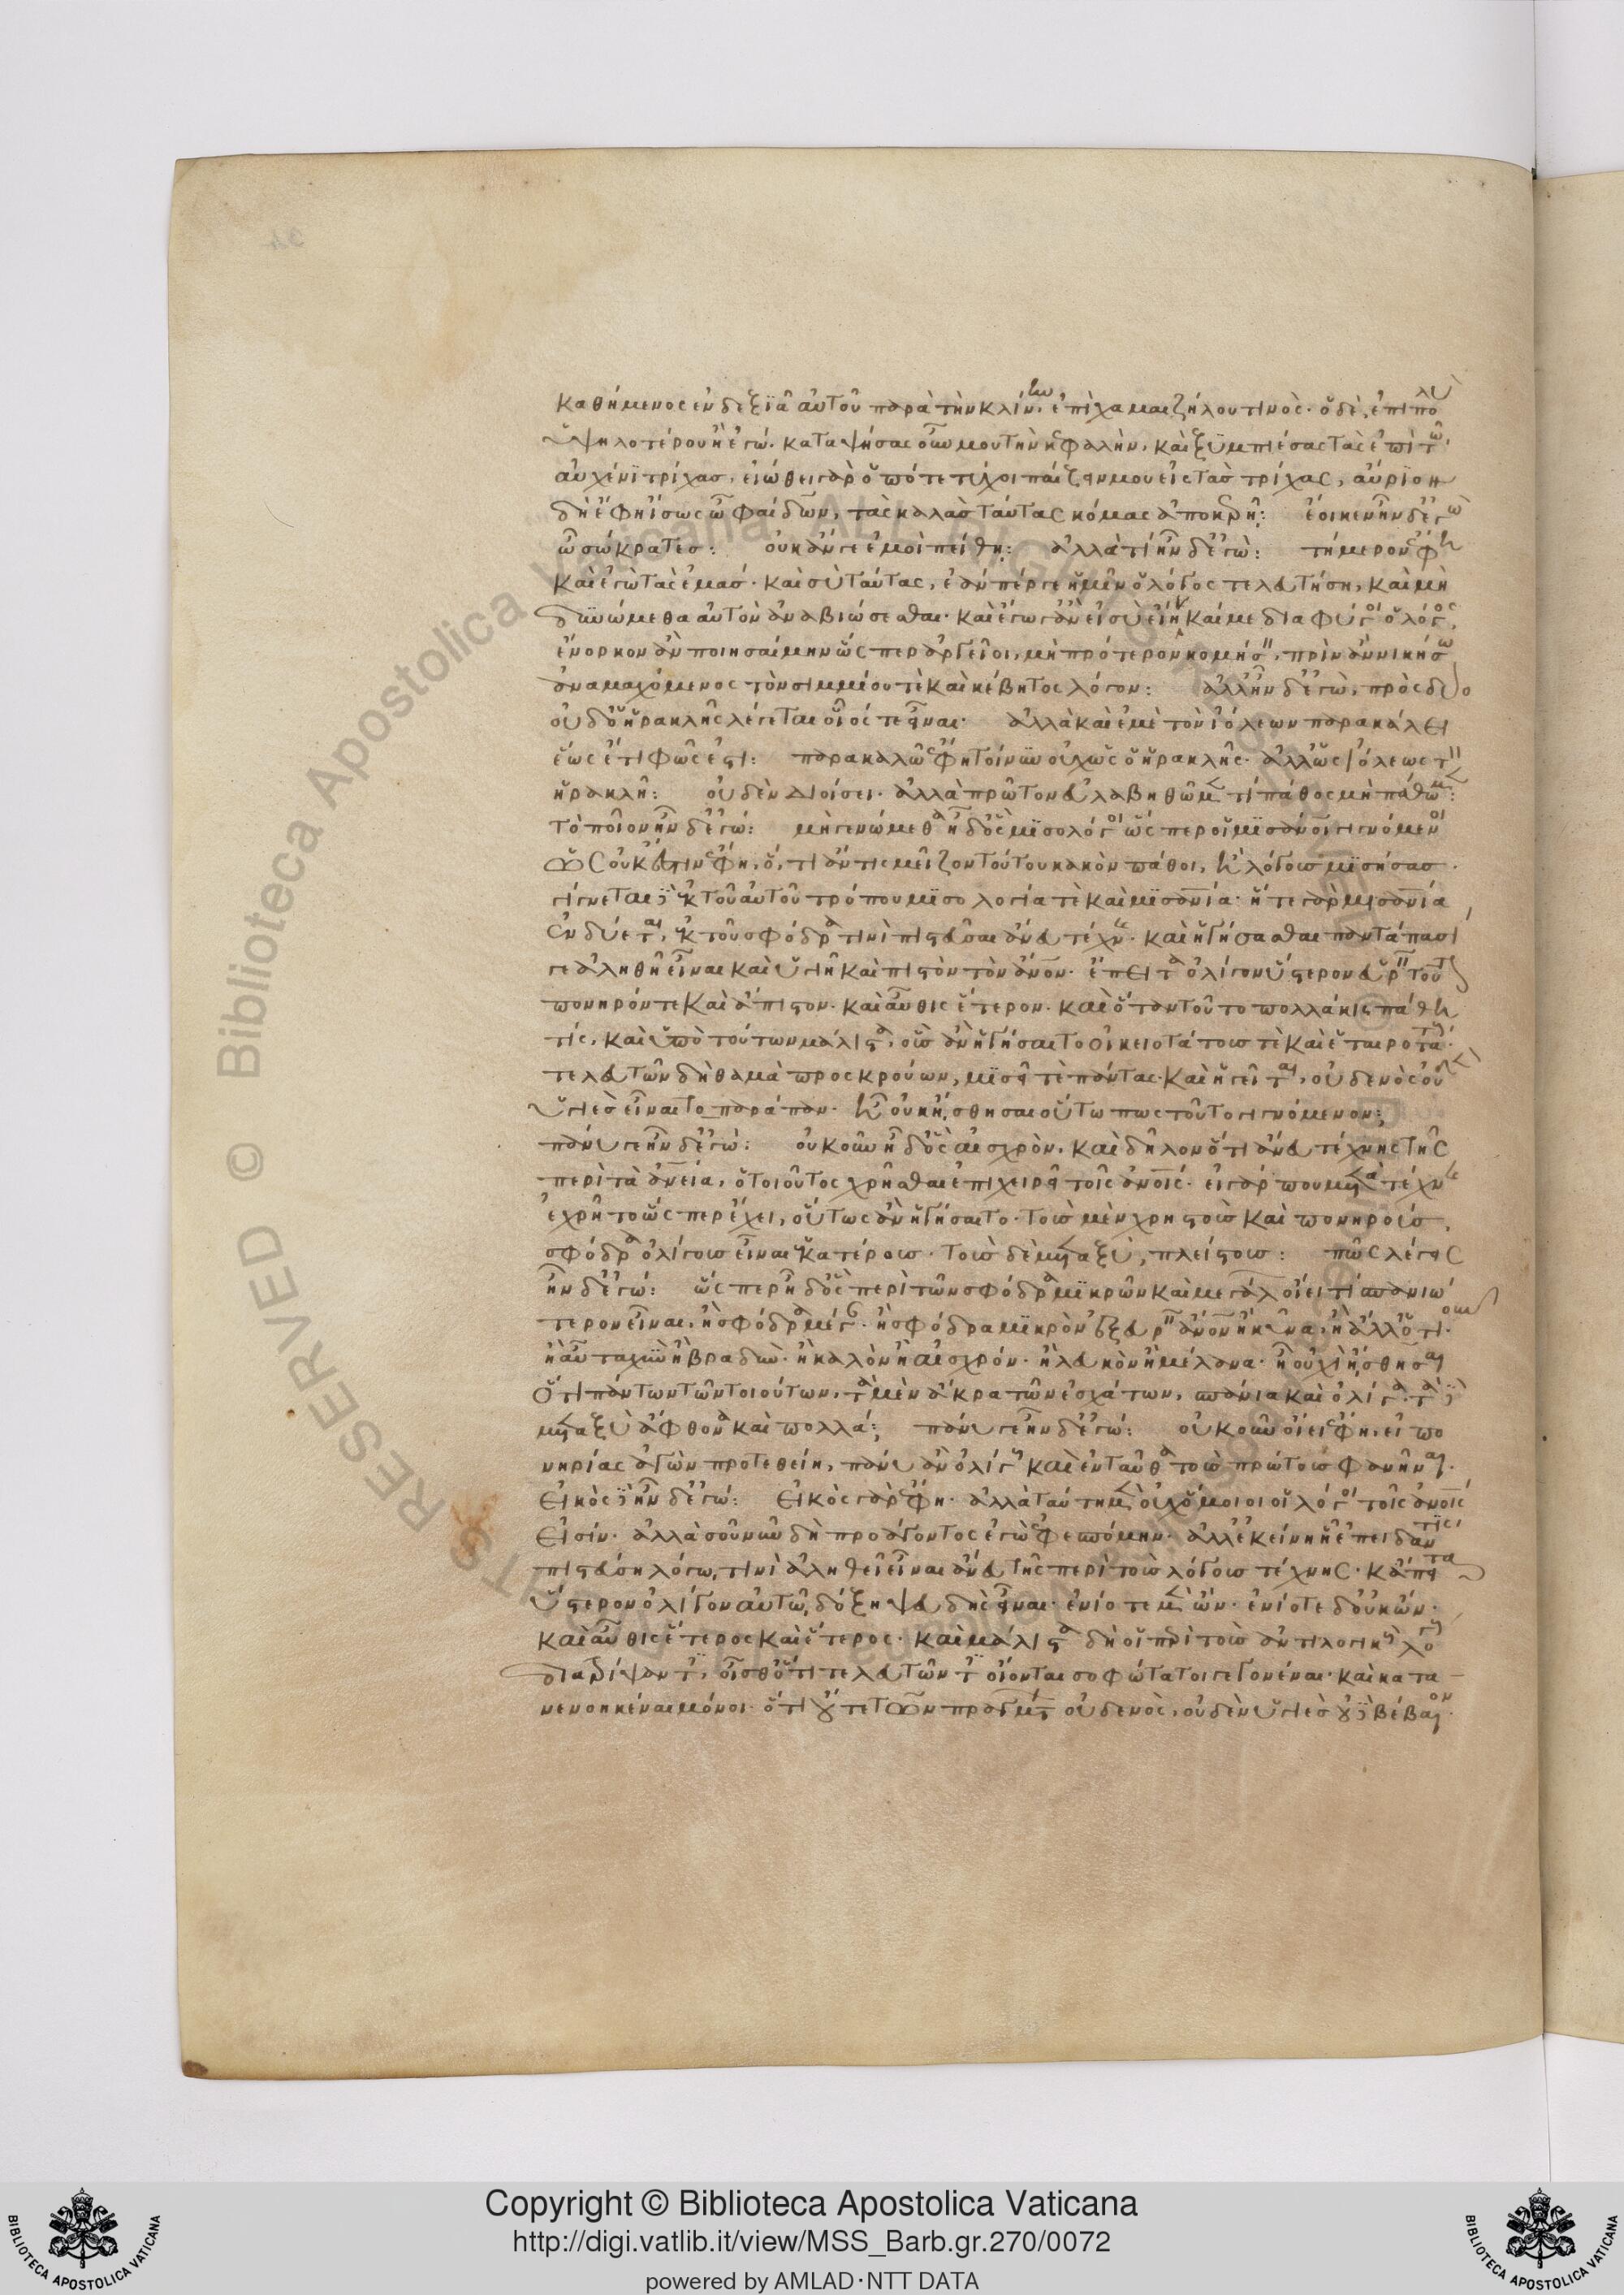 καθήμενος ἐν δεξϊᾷ αὐτοῦ παρὰ τὴν κλίνην ἐπὶ χαμαιζήλου τινὸς· ὁ δὲ, ἐπὶ πολὺ
ὑψηλοτέρου ἢ ἐγώ. καταψήσας οὖν μου τὴν κεφαλὴν, καὶ ξϋμπιέσας τὰς ἐπὶ τῶ
αὐχένϊ τρίχας, εἰώθει γὰρ ὁπότε τύχοι παίζειν μου εἰς τὰς τρίχας, αὔρϊον
δὴ ἔφη ἴσως ὦ φαίδων, τὰς καλὰς ταύτας κόμας ἀποκερῆ: ἔοικεν ἦν δ' ἐγὼ
ὦ σώκρατες: οὐκ ἄν γε ἐμοὶ πείθῃ: ἀλλὰ τί ἦν δ' ἐγὼ: τήμερον ἔφη
καὶ ἐγὼ τὰς ἐμάς· καὶ σὺ ταύτας, ἐάν πέρ γε ἡμῖν ὁ λόγος τελευτήσῃ, καὶ μὴ
δυνώμεθα αὐτὸν ἀναβιώσασθαι· καὶ ἔγωγ' ἂν εἰ σὺ εἴην καί με διαφύγοι ὁ λόγος,
ἔνορκον ἂν ποιησαίμην ὥσπερ ἀργεῖοι, μὴ πρότερον κομήσειν, πρὶν ἂν νικήσω
ἀναμαχόμενος τὸν σιμμίου τὲ καὶ κέβητος λόγον: ἀλλ' ἦν δ' ἐγὼ, πρὸς δύο
οὐδ' ὁ ἡρακλῆς λέγεται οἷός τε εἶναι· ἀλλὰ καὶ ἐμὲ τὸν ἰόλεων παρακάλει
ἕως ἔτι φῶς ἐστι: παρακαλῶ ἔφη τοίνυν οὐχ ὡς ὁ ἡρακλῆς· ἀλλ' ὡς ἰόλεως τὸν
ἡρακλῆ: οὐδὲν διοίσει· ἀλλὰ πρῶτον εὐλαβηθῶμεν τί πάθος μὴ πάθωμεν:
τὸ ποῖον ἦν δ' ἐγώ: μὴ γενώμεθα ἦ δ' ὃς μϊσολόγοι ὥσπερ οἱ μϊσάνοι γιγνόμενοι
ὡς οὐκ ἔστιν ἔφη, ὅ, τι ἄν τις μεῖζον τούτου κακὸν πάθοι, ἢ λόγους μϊσήσας.
γίγνεται δὲ ἐκ τοῦ αὐτοῦ τρόπου μϊσολογία τὲ καὶ μϊσανία· ἥ τε γὰρ μισανία
ἐνδύεται, ἐκ τοῦ σφόδρα τινὶ πιστεῦσαι ἄνευ τέχνης· καὶ ἡγήσασθαι παντάπασί
γε ἀληθῆ εἶναι καὶ ὑγιῆ καὶ πιστὸν τὸν ἄνον· ἔπειτα ὀλίγον ὕστερον εὑρεῖν τοῦτον
πονηρόν τε καὶ ἄπιστον. καὶ αὖθις ἕτερον. καὶ ὅταν τοῦτο πολλάκις πάθη
τίς, καὶ ὑπὸ τούτων μάλιστα, οὓς ἂν ἡγήσαιτο οἰκειοτάτους τὲ καὶ ἑταιροτάτους
τελευτῶν δὴ θαμὰ προσκρούων, μϊσεῖ τὲ πάντας· καὶ ἡγεῖται, οὐδενὸς οὐδὲν
ὑγιὲς εἶναι τὸ παράπαν. ἢ οὐκ ᾔσθησαι οὕτω πως τοῦτο γιγνόμενον;
πάνυ γε ἦν δ' ἐγὼ: οὐκοῦν ἦ δ' ὃς αἰσχρὸν. καὶ δῆλον ὅτι ἄνευ τέχνης τῆς
περὶ τὰ ἀνεία, ὁ τοιοῦτος χρῆσθαι ἐπιχειρεῖ τοῖς ἀνοις· εἰ γάρ που μετὰ τέχνης
ἐχρῆτο ὥσπερ ἔχει, οὕτως ἂν ἡγήσαιτο. τοὺς μὲν χρηστοὺς καὶ πονηροὺς,
σφόδρα ὀλίγους εἶναι ἑκατέρους. τοὺς δὲ μεταξὺ, πλείστους: πῶς λέγεις
ἦν δ' ἐγώ: ὥσπερ ἦ δ' ὃς περὶ τῶν σφόδρα μϊκρῶν καὶ μεγάλων οἴει τί σπανιώ
τερον εἶναι, ἢ σφόδρα μέγαν· ἢ σφόδρα μϊκρὸν ἐξευρεῖν ἄνον ἢ κύνα, ἢ ἄλλο ὁτιοῦν.
ἢ αὖ ταχὺν ἢ βραδὺν· ἢ καλὸν ἢ αἰσχρόν. ἢ λευκὸν ἢ μέλανα. ἢ οὐχὶ ᾔσθησαι
ὅτι πάντων τῶν τοιούτων, τὰ μὲν ἄκρα τῶν ἐσχάτων, σπάνια καὶ ὀλίγα· τὰ δὲ
μεταξὺ ἄφθονα καὶ πολλά; πάνυ γε ἦν δ' ἐγώ: οὐκοῦν οἴει ἔφη, εἰ πο
νηρίας ἀγὼν προτεθείη, πάνυ ἂν ὀλίγους καὶ ἐνταῦθα τοὺς πρώτους φανῆναι.
εἰκός γε ἦν δ' ἐγώ: εἰκὸς γὰρ ἔφη· ἀλλὰ ταύτη μὲν οὐχ ὅμοιοι οἱ λόγοι τοῖς ἀνοις
εἰσίν· ἀλλὰ σοῦ νῦν δὴ προάγοντος ἐγὼ ἐφεσπόμην. ἀλλ' ἐκείνη ἧ ἐπειδάν τις
πιστεύση λόγω τινὶ ἀληθεῖ εἶναι ἄνευ τῆς περὶ τοὺς λόγους τέχνης. κἄπειτα
ὕστερον ὀλίγον αὐτῶ δόξη ψευδὴς εἶναι· ἐνίοτε μὲν ὤν· ἐνίοτε δ' οὐκ ὤν·
καὶ αὖθις ἕτερος καὶ ἕτερος· καὶ μάλιστα δὴ οἱ περὶ τοὺς ἀντιλογικοὺς λόγους
διατρίψαντες, οἶσθ' ὅτι τελευτῶντες οἴονται σοφώτατοι γεγονέναι· καὶ κατα
νενοηκέναι μόνοι· ὅτι οὔτε τῶν πραγμάτων οὐδενὸς, οὐδὲν ὑγιὲς οὐδὲ βέβαιον.
Copyright © Biblioteca Apostolica Vaticana
http://digi.vatlib.it/view/MSS_Barb.gr.270/0072
powered by AMLAD·NTT DATA